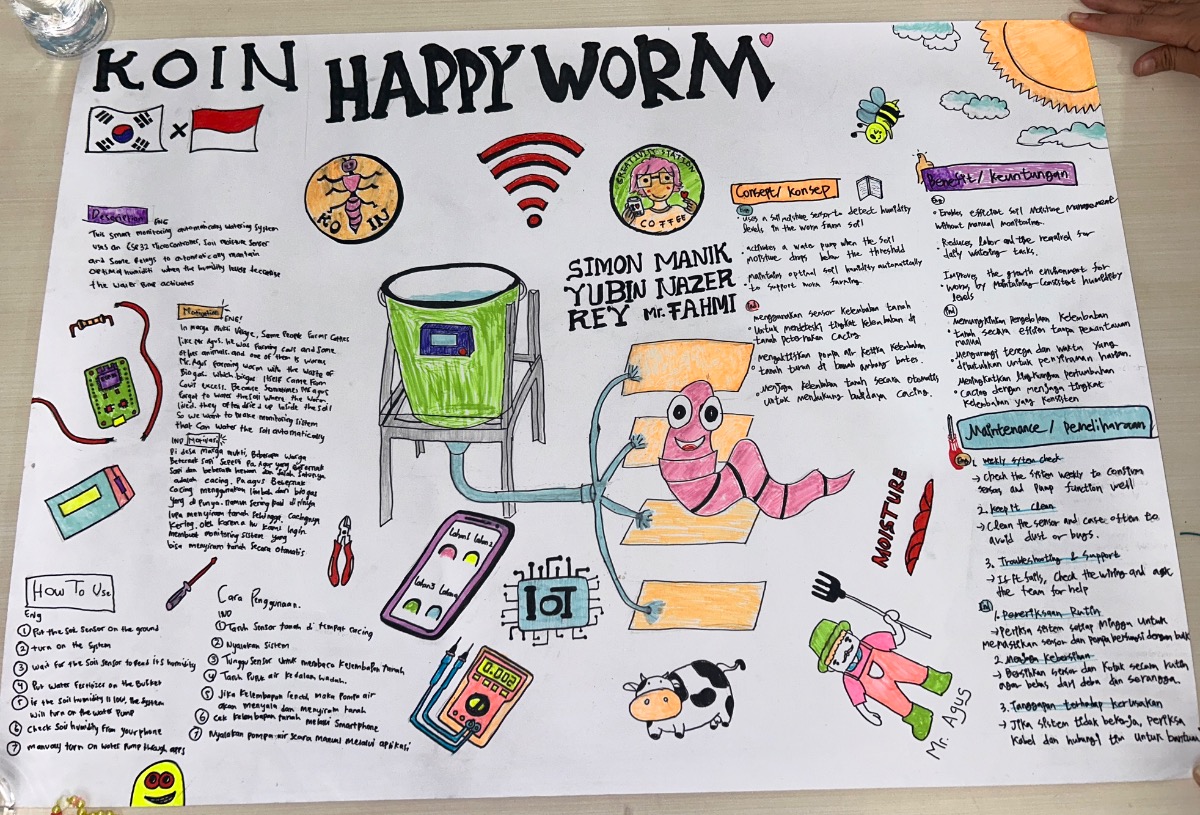 KOIN HAPPY WORM
KO IN
CREATIVITY STATION
COFFEE
SIMON MANIK
YUBIN NAZER
REY Mr. FAHMI
Description ENG
This smart monitoring automatically watering system
uses an ESP32 Microcontroller, Soil moisture Sensor
and Some Relays to automatically maintain
optimal humidity when the humidity inside decrease
the water pump activates
Motivation
ENG!
In marga Mukti Village, Some People Farms Cattles
like Mr Agus. He was farming cows and some
other animals and one of them is worms
Mr. Agus farming worm with the waste of
Biogas. Which biogas itself came from
Cow's excels. Because Sometimes Mr agus
forgot to water the soil where the worm
lived, they often dried up inside the soil
So we want to make monitoring sistem
that can water the soil automatically
IND Motivasi
Di desa Marga mukti, Beberapa warga
Beternak Sapi Seperti Pa Agus yang beternak
Sapi dan beberapa hewan
adalah cacing. Pa agus Beternak
Cacing menggunakan limbah dari biogas
yang di Punya. namun Sering kali dirinya
lupa menyiram tanah Sehingga Cacingnya
Kering, oleh karena itu kami ingin
membuat monitoring sistem yang
bisa menyiram tanah Secara otomatis
How To Use
Eng
1 Put the Soil Sensor on the ground
2 turn on the System
3 wait for the Soil Sensor to Read its humidity
4 Put Water Fertilizer on the Bucket
5 if the Soil humidity is low, the System
will turn on the water Pump
6 Check Soil humidity from your phone
7 manually turn on water Pump through apps
Cara Penggunaan.
IND
1 Taruh Sensor tanah di tempat Cacing
2 Nyalakan Sistem
3 Tunggu Sensor Untuk membaca Kelembapan Tanah
4 Taruh Pupuk air Kedalam Wadah.
5 Jika Kelembapan rendah maka Pompa air
akan menyala dan menyiram tanah
6 Cek Kelembapan tanah melalui Smartphone
7 Nyalakan pompa air Secara Manual melalui aplikasi
Lahan 1 Lahan 2
Lahan 3 Lahan 4
IoT
0.002
Concept/ Konsep
Eng
uses a Soil moisture sensor to detect humidity
levels in the worm farm soil
activates a water pump when the soil
moisture drops below the threshold
maintains optimal soil humidity automatically
to support worm farming.
Ind
menggunakan sensor kelembaban tanah
untuk mendeteksi tingkat kelembaban di
tanah peternakan cacing
mengaktifkan pompa air ketika kelembaban
tanah turun di bawah ambang batas.
Menjaga kelembaban tanah secara otomatis
untuk mendukung budidaya cacing.
Benefit/ Keuntungan
Eng
Enables efficient Soil Moisture Management
without manual monitoring.
Reduces labor and time required for
daily watering tasks.
Improves the growth environment for
worms by Maintaining consistent humidity
levels
Ind
Memungkinkan pengelolaan kelembaban
tanah secara efisien tanpa pemantauan
manual
Mengurangi tenaga dan waktu yang
dibutuhkan untuk penyiraman harian.
Meningkatkan lingkungan pertumbuhan
Cacing dengan menjaga tingkat
Kelembaban yang konsisten
Maintenance / pemeliharaan
Eng
1. Weekly system check
→ Check the system weekly to confirm
sensor, and pump function well
2. Keep It clean
→ Clean the sensor and case often to
avoid dust or bugs.
3. Troubleshooting & Support
→ If it fails, check the wiring and ask
the team for help
Ind
1. Pemeriksaan Rutin
→ Periksa sistem setiap Minggu untuk
memastikan sensor dan pompa berfungsi dengan baik
2. Menjaga Kebersihan
→ Bersihkan sensor dan kotak secara rutin
agar bebas dari debu dan serangga.
3. Tanggapan terhadap kerusakan
→ Jika sistem tidak bekerja, periksa
Kabel dan hubungi tim untuk bantuan
MOISTURE
Mr. Agus